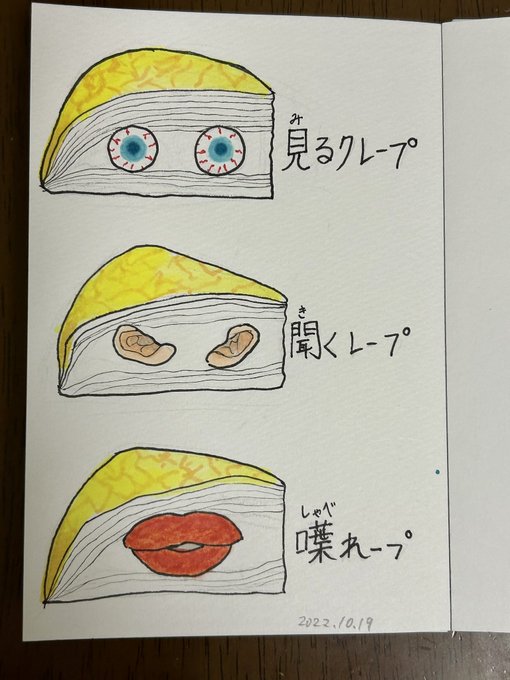 み
見るクレープ
き
聞くレープ
しゃべ
喋れープ
2022.10.19